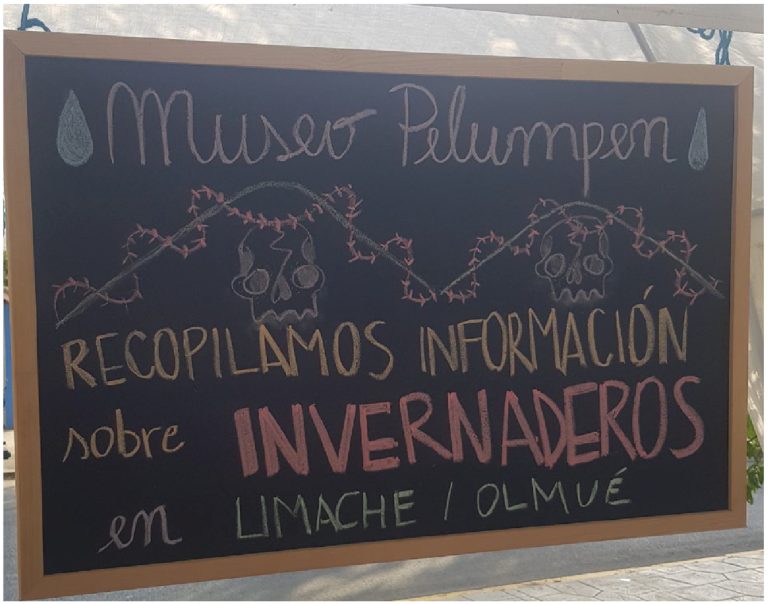 Museo Pelumpen
RECOPILAMOS INFORMACIÓN
sobre INVERNADEROS
en LIMACHE / OLMUÉ